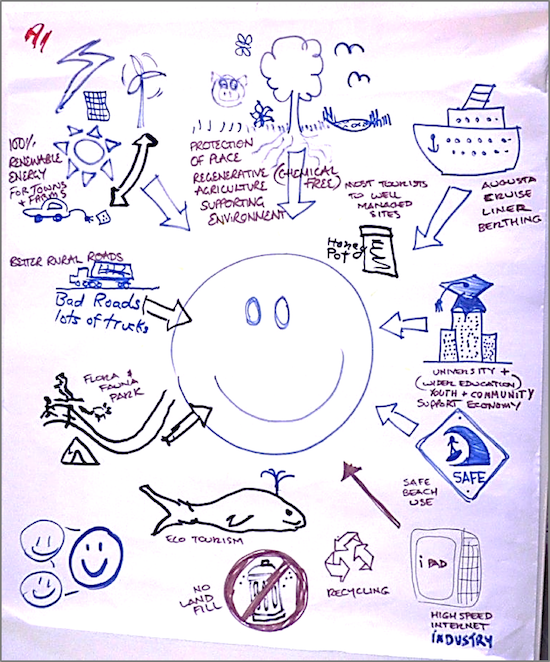 A1
100%
RENEWABLE
ENERGY
FOR TOWNS
+ FARMS
PROTECTION
OF PLACE
REGENERATIVE (CHEMICAL
AGRICULTURE FREE)
SUPPORTING
ENVIRONMENT
MOST TOURISTS
TO WELL
MANAGED
SITES
Honey
Pot
AUGUSTA
CRUISE
LINER
BERTHING
BETTER RURAL ROADS
Bad Roads
lots of trucks
FLORA &
FAUNA
PARK
UNIVERSITY +
(WIDER EDUCATION)
YOUTH + COMMUNITY
SUPPORT ECONOMY
SAFE
SAFE
BEACH
USE
ECO TOURISM
NO
LAND
FILL
RECYCLING
iPAD
HIGH SPEED
INTERNET
INDUSTRY